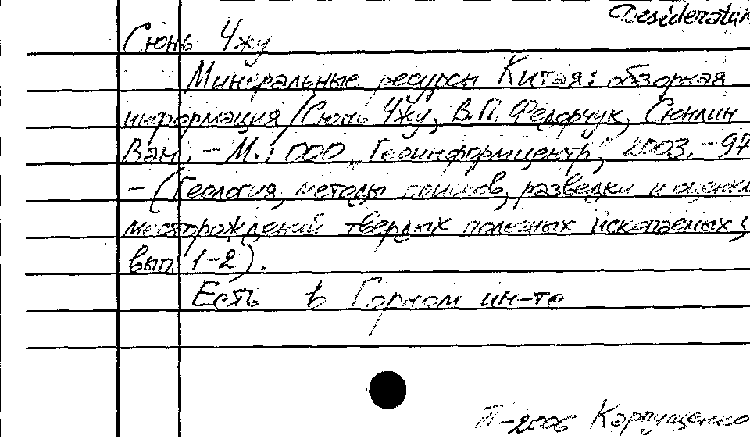 Desiderata
Сюнь Чжу
Минеральные ресурсы Китая: обзорная
информация / Сюнь Чжу, В.П. Федорчук, Сюнлин
Ван. – М.: ООО „Геоинформцентр", 2003. – 97
– (Геология, методы поисков, разведки и оценки
месторождений твердых полезных ископаемых;
вып. 1-2).
Есть в Горном ин-те
-2006 Карпущенко